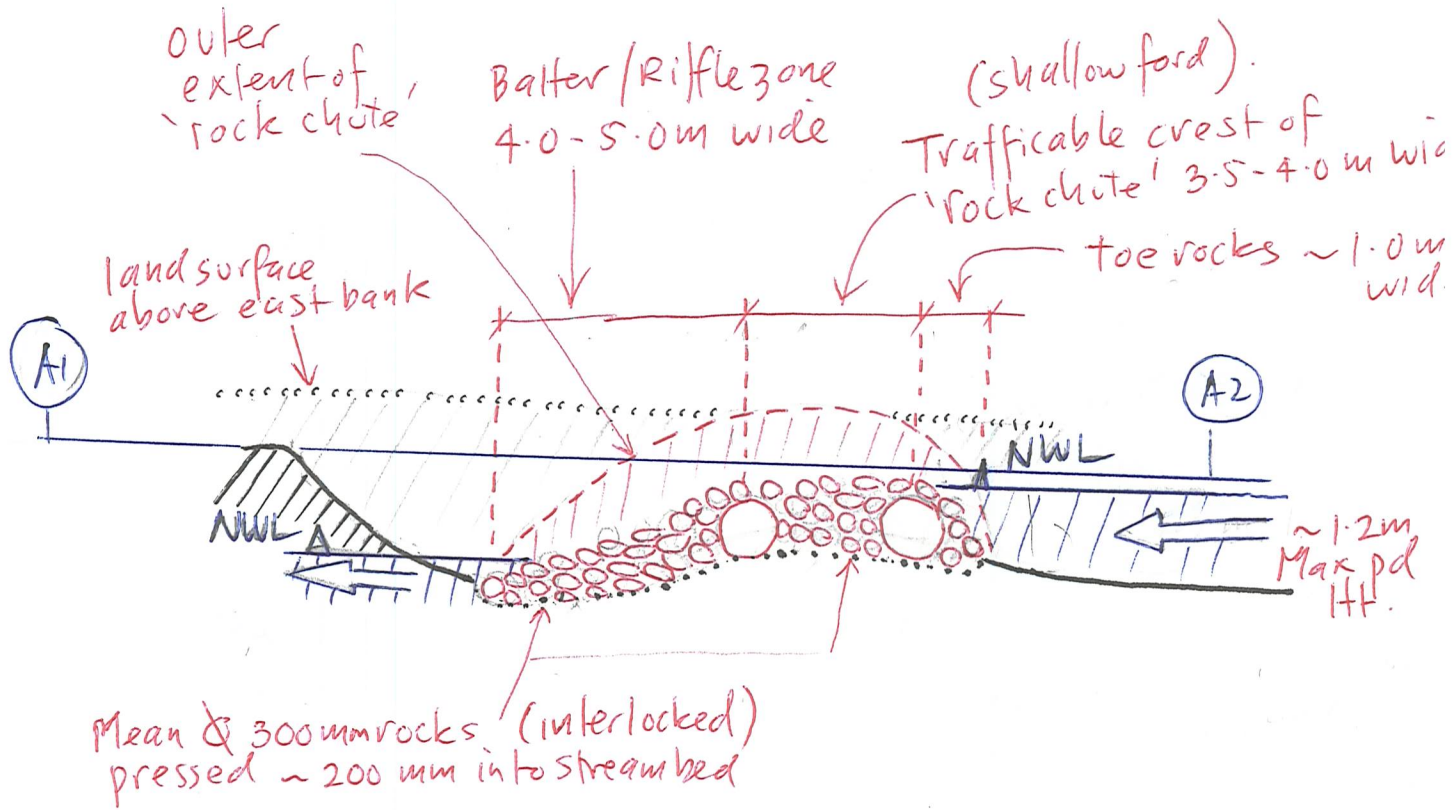 outer
extent of
'rock chute'
Batter/Riffle zone
4.0-5.0m wide
(shallow ford).
Trafficable crest of
'rock chute' 3.5-4.0m wid
toe rocks ~1.0m
wid.
land surface
above east bank
A1
A2
NWL
NWL
~1.2m
Max pd
Ht.
Mean Ø 300mm rocks (interlocked)
pressed ~200 mm into streambed